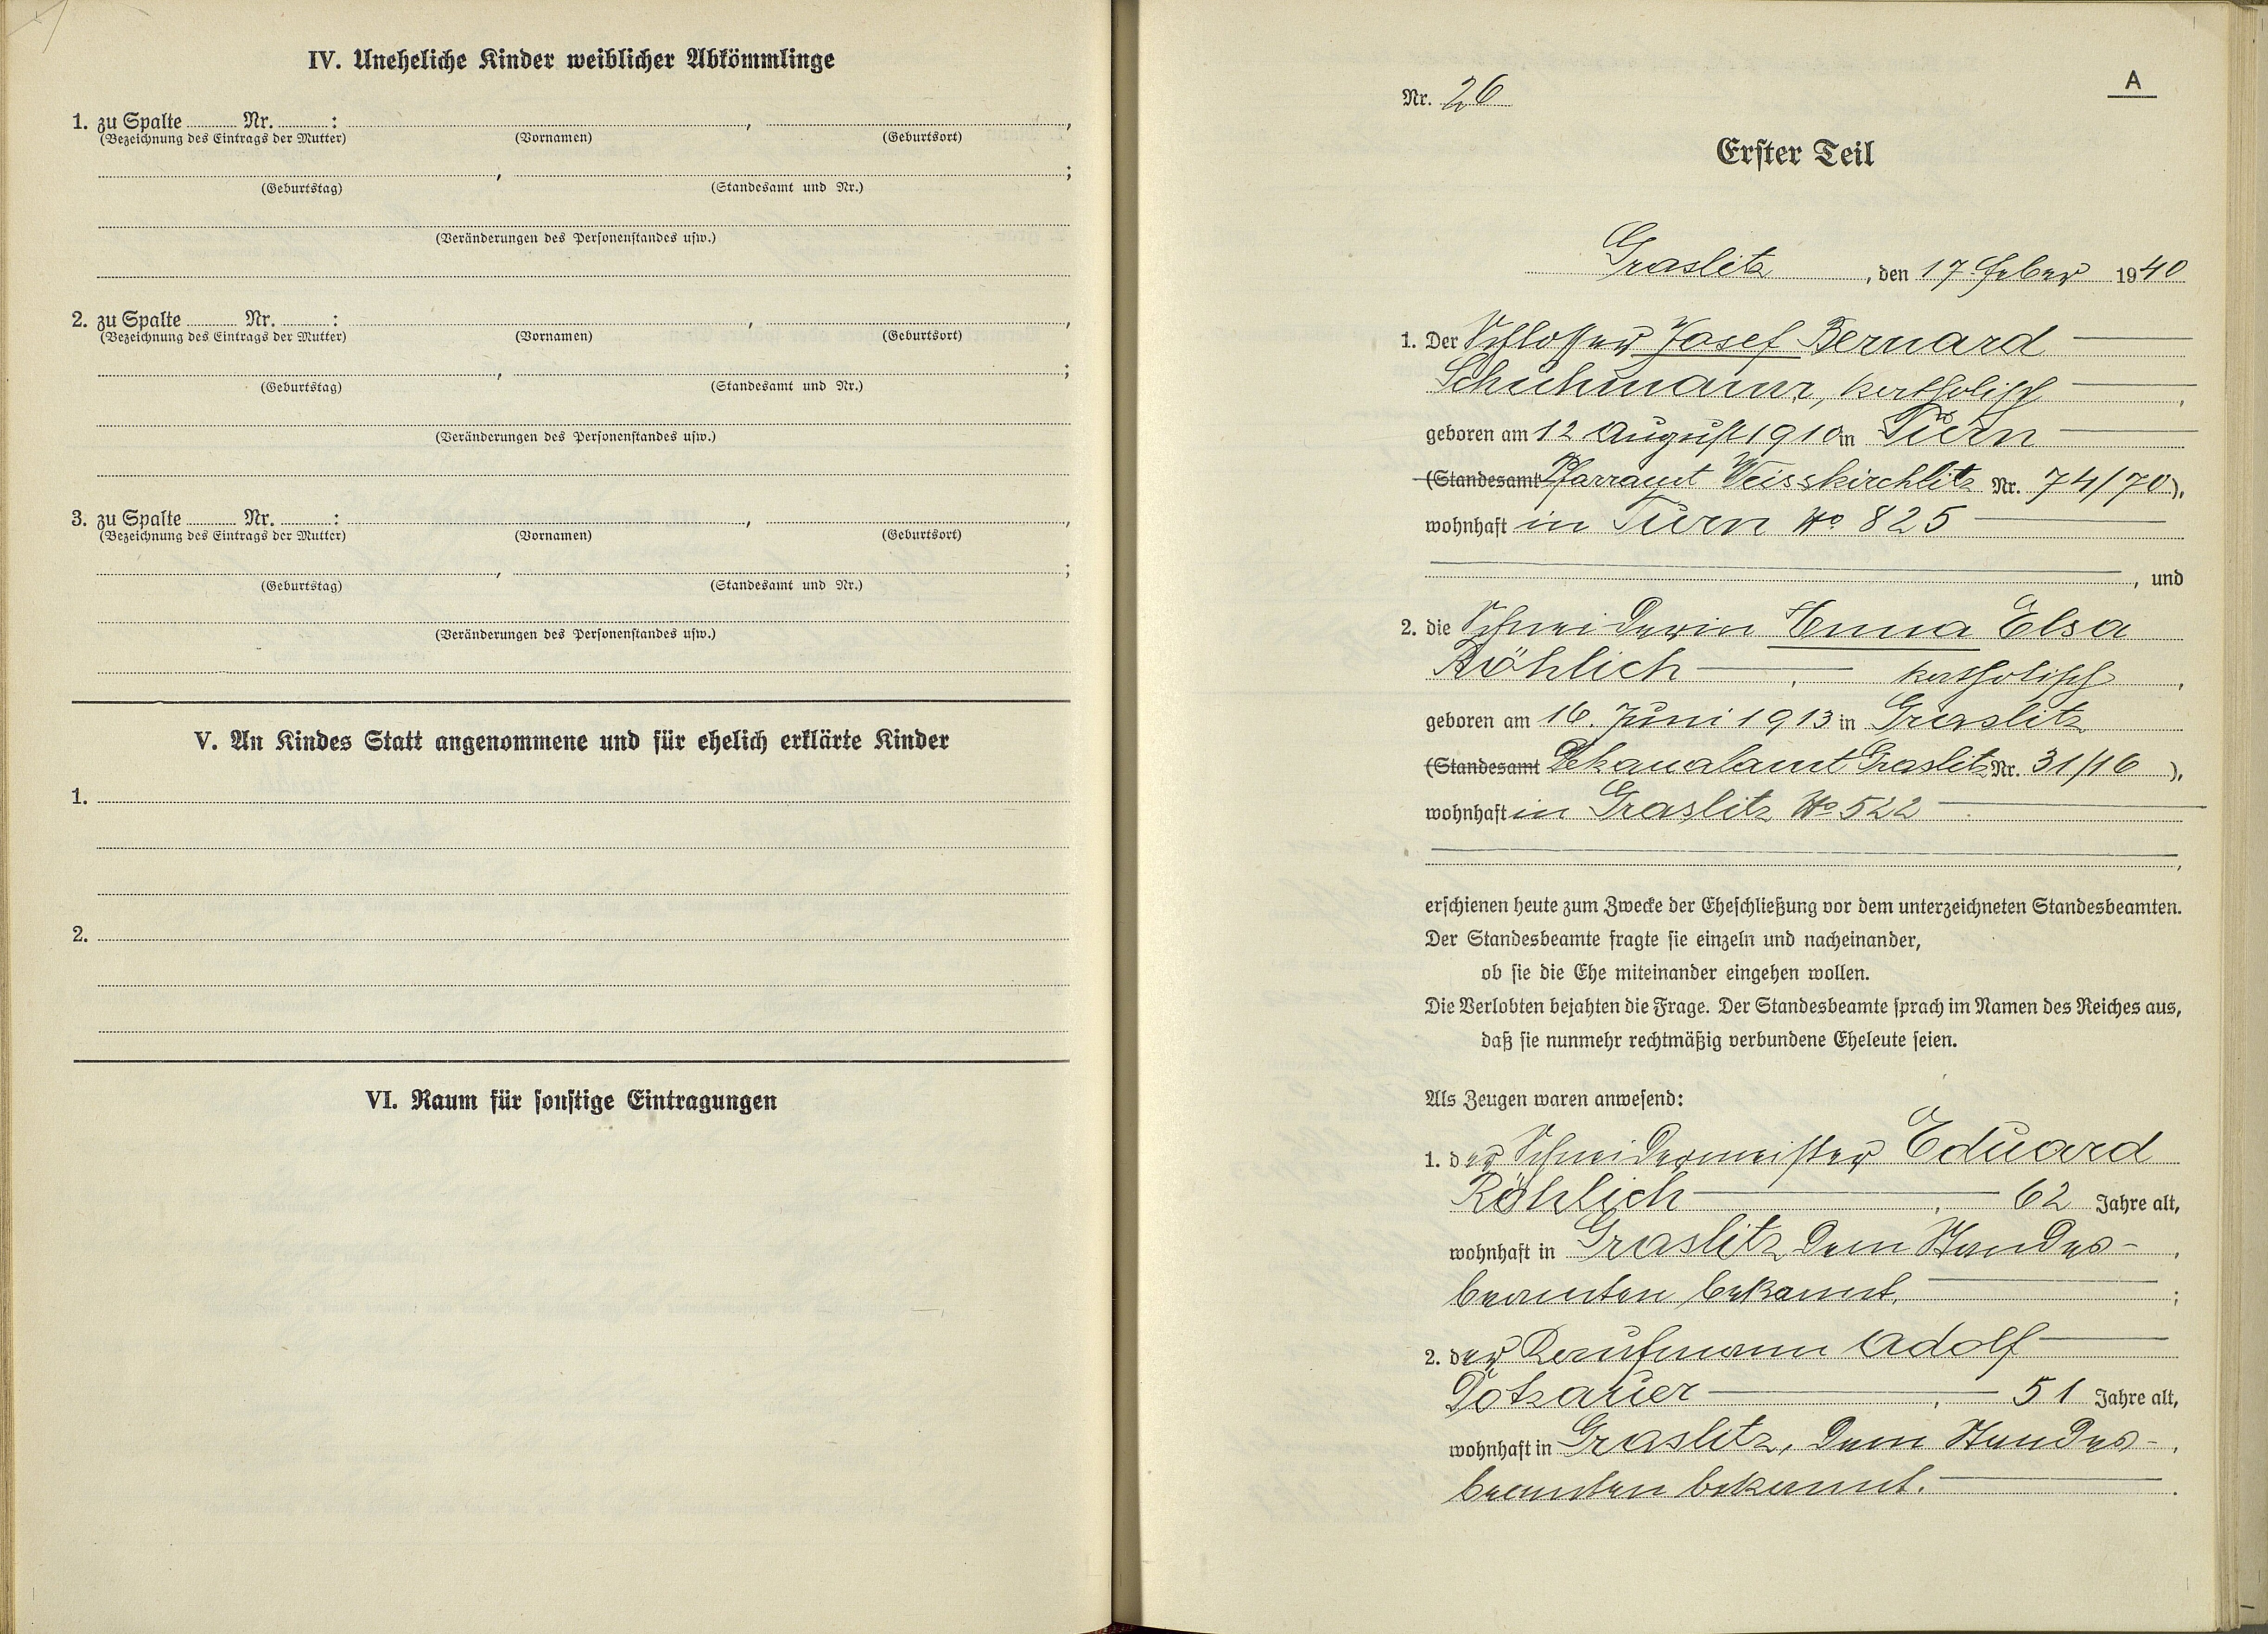 IV. Uneheliche Kinder weiblicher Abkömmlinge
1. zu Spalte ........ Nr. ........ : ........ , ........ ,
(Bezeichnung des Eintrags der Mutter) (Vornamen) (Geburtsort)
........ , ........ ;
(Geburtstag) (Standesamt und Nr.)
(Veränderungen des Personenstandes usw.)
2. zu Spalte ........ Nr. ........ : ........ , ........ ,
(Bezeichnung des Eintrags der Mutter) (Vornamen) (Geburtsort)
........ , ........ ;
(Geburtstag) (Standesamt und Nr.)
(Veränderungen des Personenstandes usw.)
3. zu Spalte ........ Nr. ........ : ........ , ........ ,
(Bezeichnung des Eintrags der Mutter) (Vornamen) (Geburtsort)
........ , ........ ;
(Geburtstag) (Standesamt und Nr.)
(Veränderungen des Personenstandes usw.)
V. An Kindes Statt angenommene und für ehelich erklärte Kinder
1.
2.
VI. Raum für sonstige Eintragungen
A
Nr. 26
Erster Teil
Graslitz, den 17. Feber 1940
1. Der Schlosser Josef Bernard
Schuhmann, katholisch,
geboren am 12 August 1910 in Turn
(Standesamt Pfarramt Weisskirchlitz Nr. 74/70),
wohnhaft in Turn No 825
, und
2. die Schneiderin Anna Elsa
Röhlich, katholisch,
geboren am 16. Juni 1913 in Graslitz
(Standesamt Dekanalamt Graslitz Nr. 31/16),
wohnhaft in Graslitz No 522
,
erschienen heute zum Zwecke der Eheschließung vor dem unterzeichneten Standesbeamten.
Der Standesbeamte fragte sie einzeln und nacheinander,
ob sie die Ehe miteinander eingehen wollen.
Die Verlobten bejahten die Frage. Der Standesbeamte sprach im Namen des Reiches aus,
daß sie nunmehr rechtmäßig verbundene Eheleute seien.
Als Zeugen waren anwesend:
1. der Schneidermeister Eduard
Röhlich, 62 Jahre alt,
wohnhaft in Graslitz dem Standes-,
beamten bekannt. ;
2. der Kaufmann Adolf
Potzauer, 51 Jahre alt,
wohnhaft in Graslitz, dem Standes-,
beamten bekannt.